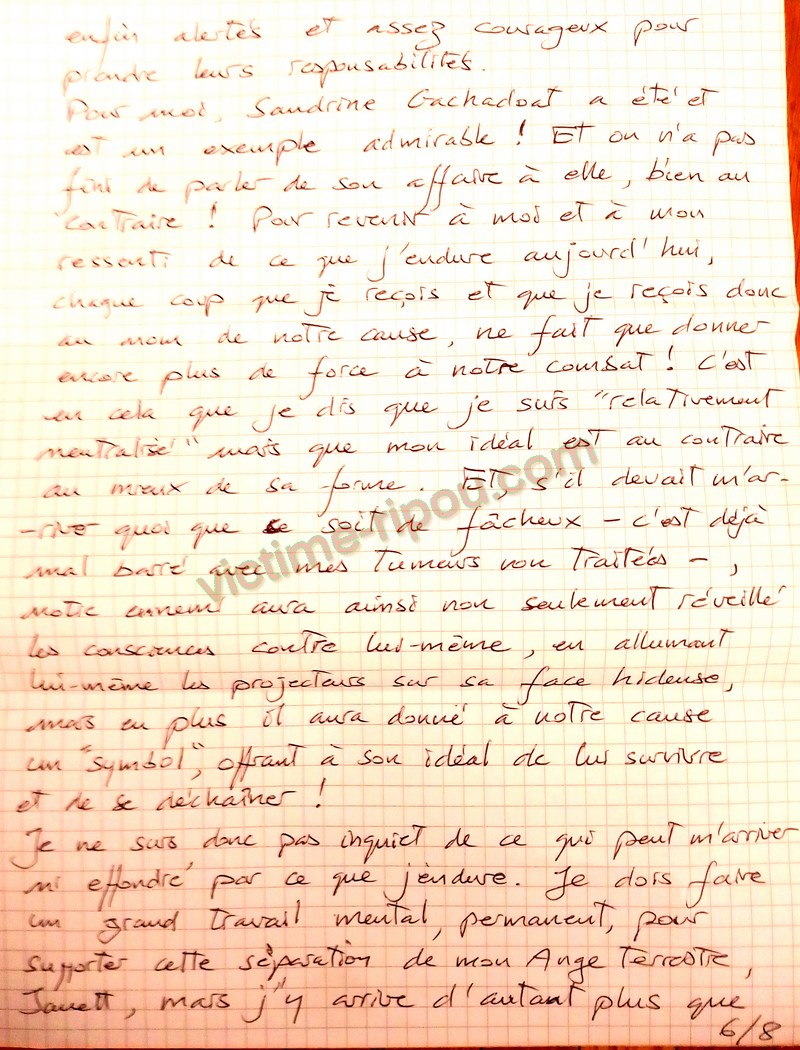 enfin alertés et assez courageux pour
prendre leurs responsabilités.
Pour moi, Sandrine Gachadoat a été et
est un exemple admirable ! Et on n'a pas
fini de parler de son affaire à elle, bien au
contraire ! Pour revenir à moi et à mon
ressenti de ce que j'endure aujourd'hui,
chaque coup que je reçois et que je reçois donc
au nom de notre cause, ne fait que donner
encore plus de force à notre combat ! C'est
en cela que je dis que je suis "relativement
neutralisé" mais que mon idéal est au contraire
au mieux de sa forme. Et, s'il devait m'ar-
-river quoi que ce soit de fâcheux - c'est déjà
mal barré avec mes tumeurs non traitées -,
notre ennemi aura ainsi non seulement réveillé
les consciences contre lui-même, en allumant
lui-même les projecteurs sur sa face hideuse,
mais en plus il aura donné à notre cause
un "symbol", offrant à son idéal de lui survivre
et de se déchaîner !
Je ne suis donc pas inquiet de ce qui peut m'arriver
ni effondré par ce que j'endure. Je dois faire
un grand travail mental, permanent, pour
supporter cette séparation de mon Ange Terrestre,
Janett, mais j'y arrive d'autant plus que
6/8
victime-ripou.com